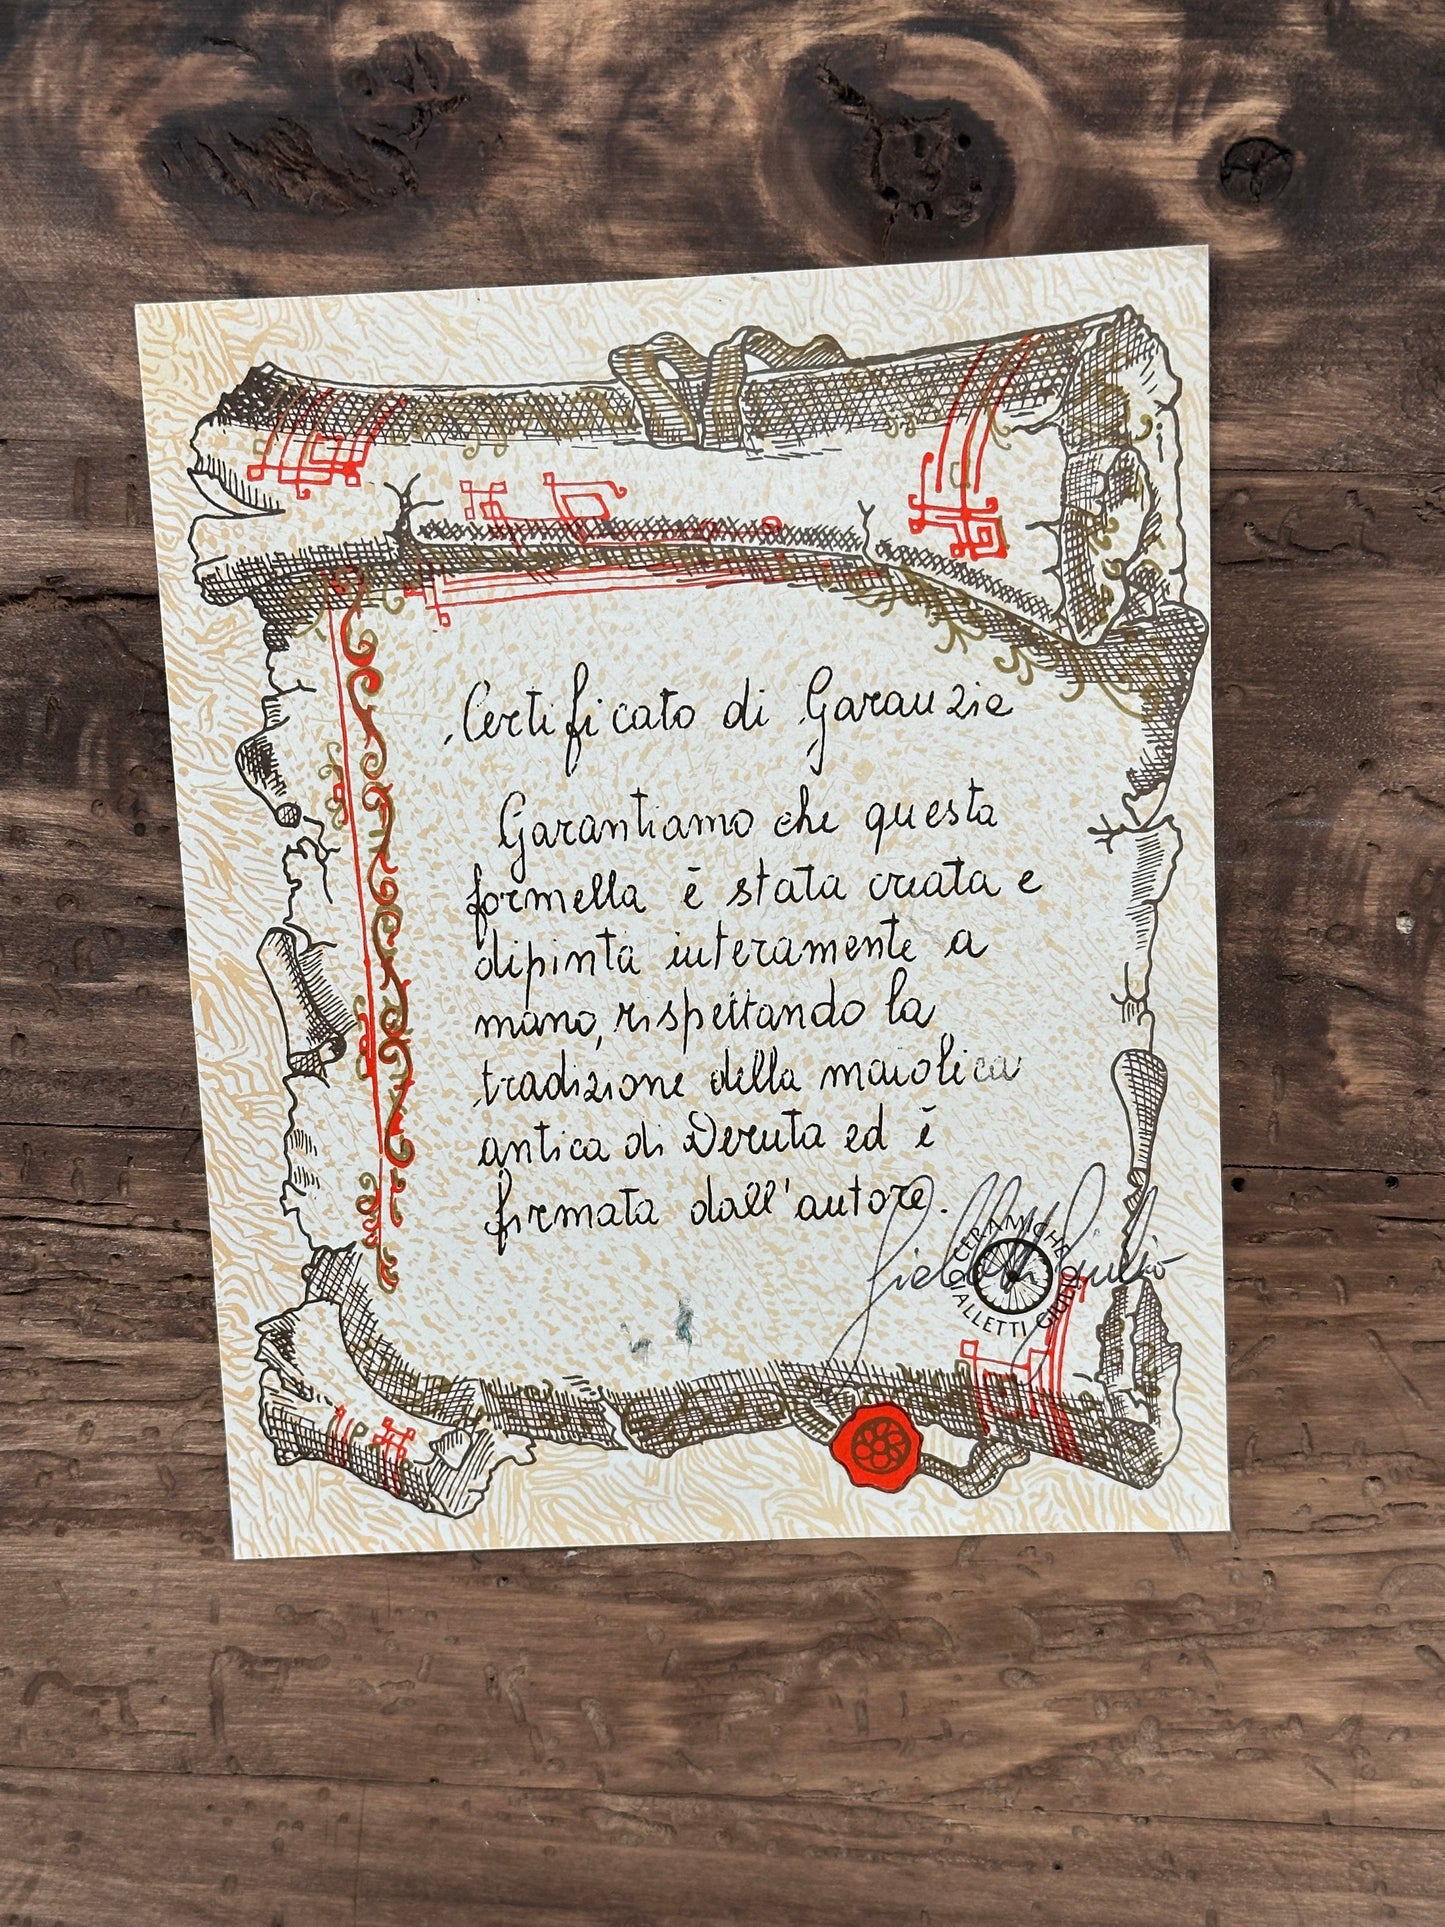 Certificato di Garanzie
Garantiamo che questa
formella è stata creata e
dipinta interamente a
mano, rispettando la
tradizione della maiolica
antica di Deruta ed è
firmata dall'autore.
CERAMICHE
GIALLETTI GIULIO
Gialletti Giulio